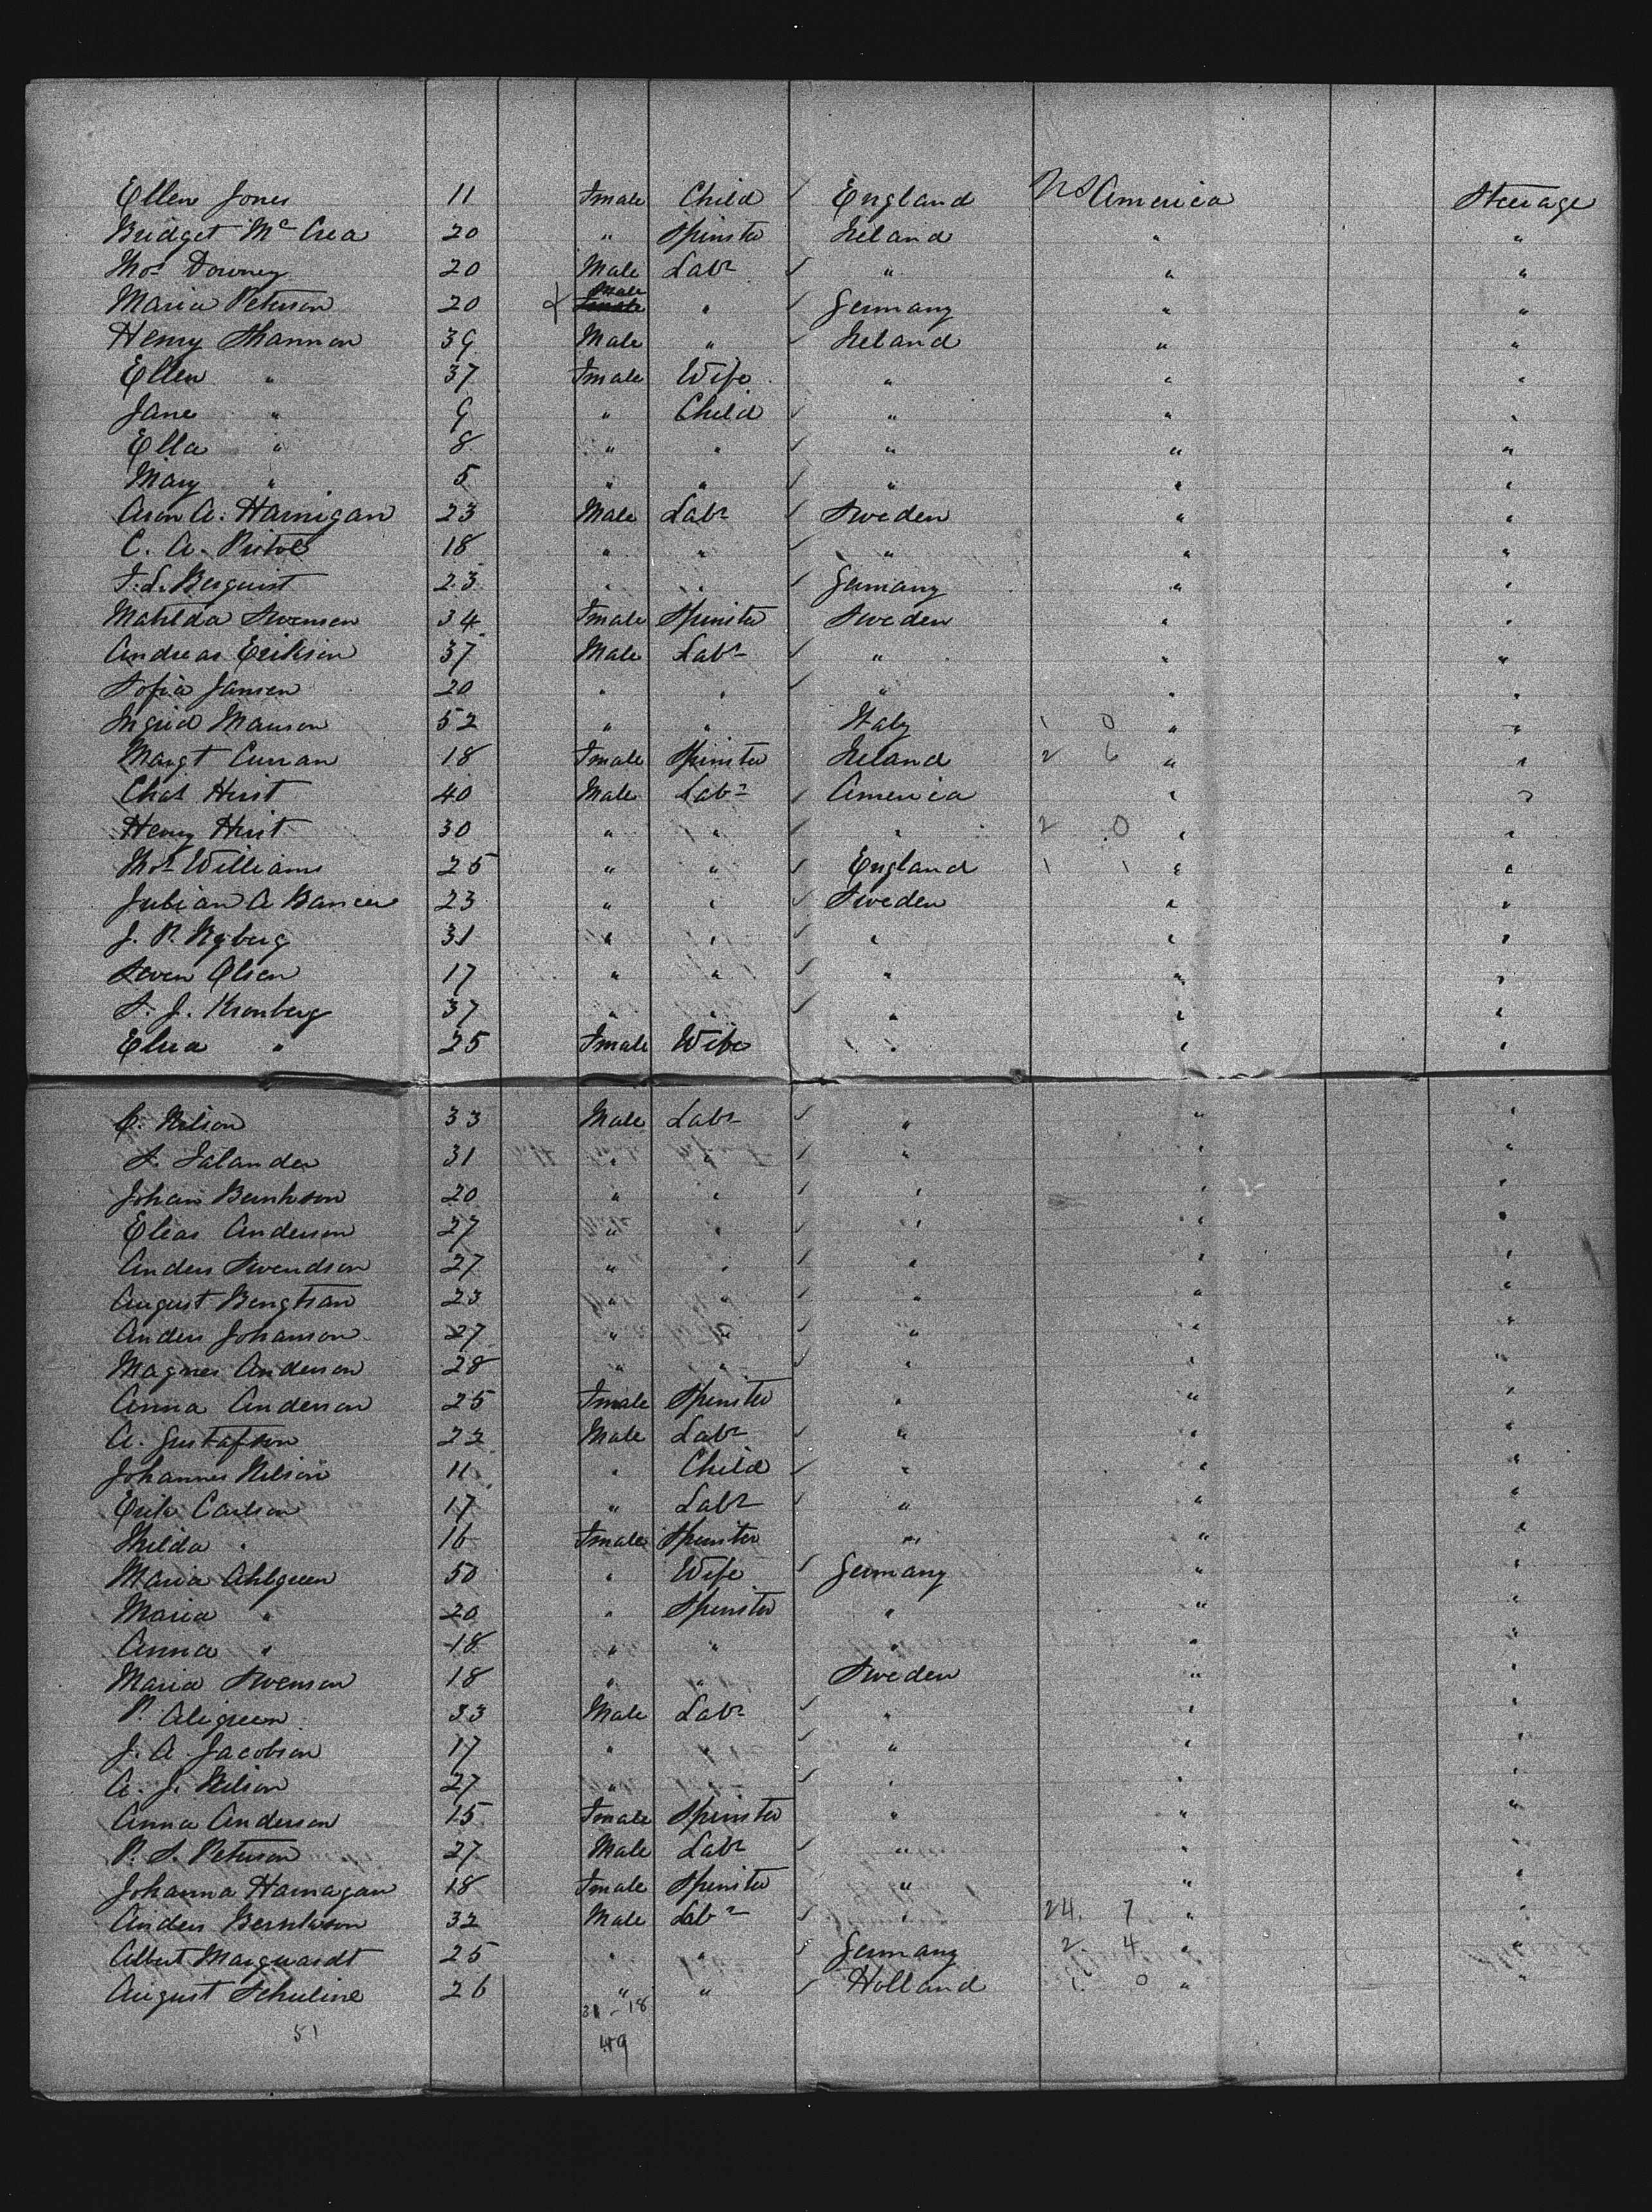 Ellen Jones 11 Fmale Child ✓ England US America Steerage
Bridget McCrea 20 " Spinster Ireland " "
Thos Downey 20 Male Labr ✓ " " "
Maria Peterson 20 Male " ✓ Germany " "
Henry Shannon 39 Male " ✓ Ireland " "
Ellen " 37 Fmale Wife " " "
Jane " 9 " Child ✓ " " "
Ella " 8 " " ✓ " " "
Mary " 5 " " ✓ " " "
Aron A. Harnigan 23 Male Labr ✓ Sweden " "
C. A. 18 " " ✓ " " "
F. L. Berquist 23 " " ✓ Germany " "
Matilda Swenson 34 Fmale Spinster Sweden " "
Andreas Erikson 37 Male Labr ✓ " " "
Sofia Jansen 20 " " ✓ " " "
Ingrid Manson 52 " " Italy 1 0 " "
Margt Curran 18 Fmale Spinster Ireland 2 6 " "
Chas Hirst 40 Male Labr ✓ America " "
Henry Hirst 30 " " ✓ " 2 0 " "
Thos Williams 25 " " ✓ England 1 1 " "
Julian A 23 " " ✓ Sweden " "
J. P. Nyberg 31 " " ✓ " " "
Seven Olsen 17 " " ✓ " " "
S. J. Kronberg 37 " " ✓ " " "
Elisa " 25 Fmale Wife " " "
C. Nilson 33 Male Labr ✓ " " "
S. Salander 31 " " ✓ " " "
Johan Bernhson 20 " " ✓ " " "
Elias Anderson 27 " " ✓ " " "
Anders Swendson 27 " " ✓ " " "
August Bengtson 23 " " ✓ " " "
Anders Johanson 27 " " ✓ " " "
Magnes Anderson 28 " " ✓ " " "
Anna Anderson 25 Fmale Spinster " " "
A. Gustafson 22 Male Labr ✓ " " "
Johannes Nilson 11 " Child ✓ " " "
Erik Carlson 17 " Labr ✓ " " "
Hilda " 16 Fmale Spinster " " "
Maria Ahlgreen 50 " Wife ✓ Germany " "
Maria " 20 " Spinster " " "
Anna " 18 " " " " "
Maria Swenson 18 " " Sweden " "
P. Aligreen 33 Male Labr ✓ " " "
J. A. Jacobson 17 " ✓ " " "
A. J. Nilson 27 " ✓ " " "
Anna Anderson 15 Fmale Spinster " " "
P. S. Peterson 27 Male Labr ✓ " " "
Johanna Harnagan 18 Fmale Spinster " " "
Anders Berntson 32 Male Labr ✓ " 24. 7 " "
Albert Marquardt 25 " " ✓ Germany 2. 4 " "
August Schuline 26 " " ✓ Holland 1. 0 " "
31 - 18
51 49